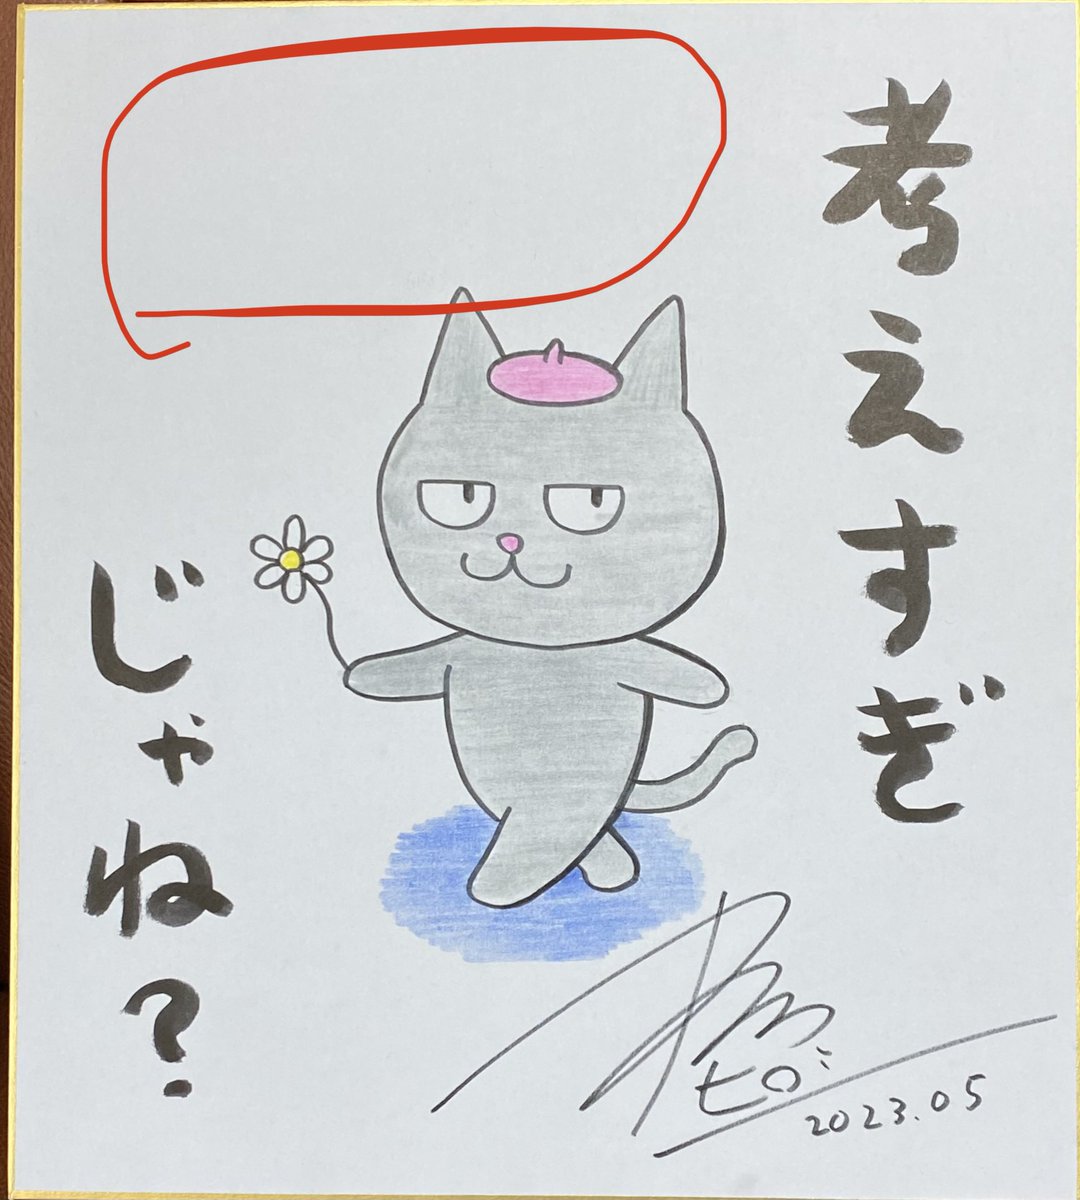 考えすぎ
じゃね？
ヒロ
2023.05